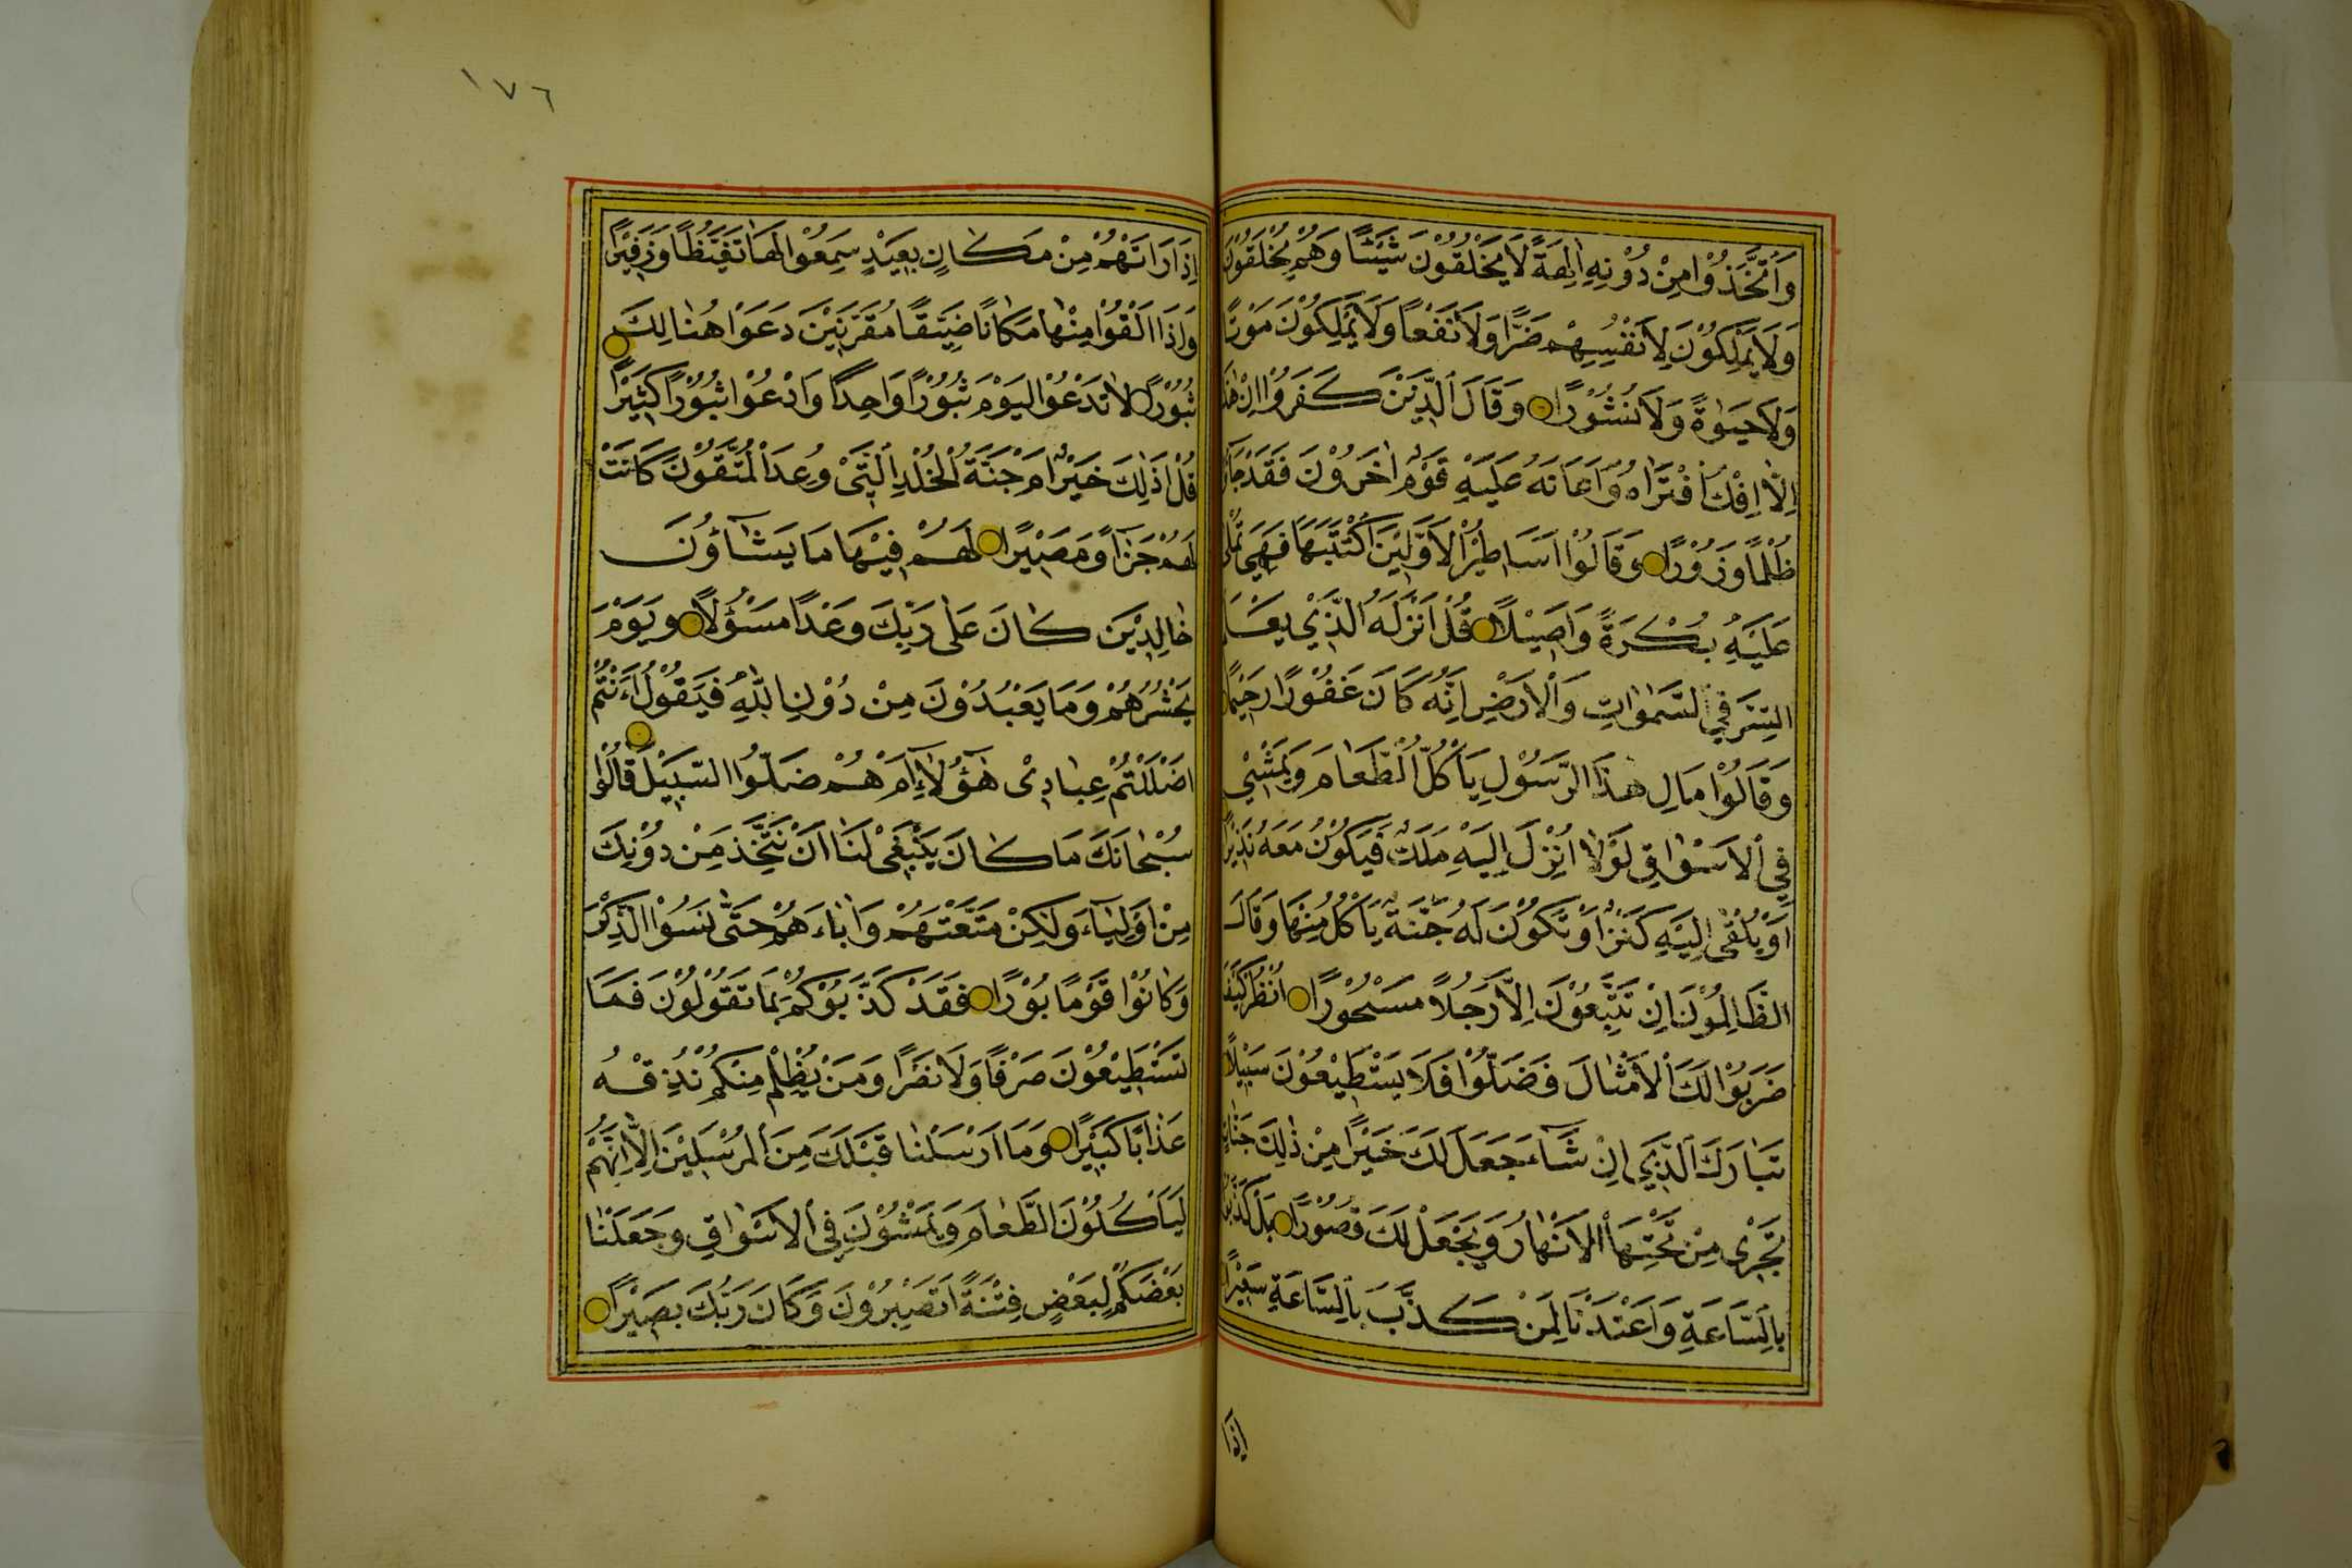 وَاتَّخَذُوْا مِنْ دُوْنِهِ اٰلِهَةً لَا يَخْلُقُوْنَ شَيْئًا وَهُمْ يُخْلَقُوْنَ
وَلَا يَمْلِكُوْنَ لِاَنْفُسِهِمْ ضَرًّا وَلَا نَفْعًا وَلَا يَمْلِكُوْنَ مَوْتًا
وَلَا حَيٰوةً وَلَا نُشُوْرًا وَقَالَ الَّذِيْنَ كَفَرُوْا اِنْ هٰذَا
اِلَّا اِفْكٌ افْتَرٰاهُ وَاَعَانَهُ عَلَيْهِ قَوْمٌ اٰخَرُوْنَ فَقَدْ جَاؤُ
ظُلْمًا وَزُوْرًا وَقَالُوْا اَسَاطِيْرُ الْاَوَّلِيْنَ اكْتَتَبَهَا فَهِيَ تُمْلٰى
عَلَيْهِ بُكْرَةً وَاَصِيْلًا قُلْ اَنْزَلَهُ الَّذِيْ يَعْلَمُ
السِّرَّ فِي السَّمٰوٰاتِ وَالْاَرْضِ اِنَّهُ كَانَ غَفُوْرًا رَحِيْمًا
وَقَالُوْا مَالِ هٰذَا الرَّسُوْلِ يَأْكُلُ الطَّعَامَ وَيَمْشِيْ
فِي الْاَسْوٰاقِ لَوْلَا اُنْزِلَ اِلَيْهِ مَلَكٌ فَيَكُوْنُ مَعَهُ نَذِيْرًا
اَوْ يُلْقٰى اِلَيْهِ كَنْزٌ اَوْ تَكُوْنُ لَهُ جَنَّةٌ يَأْكُلُ مِنْهَا وَقَالَ
الظَّالِمُوْنَ اِنْ تَتَّبِعُوْنَ اِلَّا رَجُلًا مَسْحُوْرًا اُنْظُرْ كَيْفَ
ضَرَبُوْا لَكَ الْاَمْثَالَ فَضَلُّوْا فَلَا يَسْتَطِيْعُوْنَ سَبِيْلًا
تَبَارَكَ الَّذِيْ اِنْ شَآءَ جَعَلَ لَكَ خَيْرًا مِنْ ذٰلِكَ جَنَّاتٍ
تَجْرِيْ مِنْ تَحْتِهَا الْاَنْهَارُ وَيَجْعَلْ لَكَ قُصُوْرًا بَلْ كَذَّبُوْا
بِالسَّاعَةِ وَاَعْتَدْنَا لِمَنْ كَذَّبَ بِالسَّاعَةِ سَعِيْرًا
اِذَا
١٧٦
اِذَا رَاَتْهُمْ مِنْ مَكَانٍ بَعِيْدٍ سَمِعُوْا لَهَا تَغَيُّظًا وَزَفِيْرًا
وَاِذَا اُلْقُوْا مِنْهَا مَكَانًا ضَيِّقًا مُقَرَّنِيْنَ دَعَوْا هُنَالِكَ
ثُبُوْرًا لَا تَدْعُوْا الْيَوْمَ ثُبُوْرًا وَاحِدًا وَادْعُوْا ثُبُوْرًا كَثِيْرًا
قُلْ اَذٰلِكَ خَيْرٌ اَمْ جَنَّةُ الْخُلْدِ الَّتِيْ وُعِدَ الْمُتَّقُوْنَ كَانَتْ
لَهُمْ جَزَآءً وَمَصِيْرًا لَهُمْ فِيْهَا مَا يَشَآؤُنَ
خَالِدِيْنَ كَانَ عَلٰى رَبِّكَ وَعْدًا مَسْؤُلًا وَيَوْمَ
يَحْشُرُهُمْ وَمَا يَعْبُدُوْنَ مِنْ دُوْنِ اللّٰهِ فَيَقُوْلُ ءَاَنْتُمْ
اَضْلَلْتُمْ عِبَادِيْ هٰٓؤُلَآءِ اَمْ هُمْ ضَلُّوا السَّبِيْلَ قَالُوْا
سُبْحَانَكَ مَا كَانَ يَنْبَغِيْ لَنَا اَنْ نَتَّخِذَ مِنْ دُوْنِكَ
مِنْ اَوْلِيَآءَ وَلٰكِنْ مَتَّعْتَهُمْ وَاٰبَاءَهُمْ حَتّٰى نَسُوْا الذِّكْرَ
وَكَانُوْا قَوْمًا بُوْرًا فَقَدْ كَذَّبُوْكُمْ بِمَا تَقُوْلُوْنَ فَمَا
تَسْتَطِيْعُوْنَ صَرْفًا وَلَا نَصْرًا وَمَنْ يَظْلِمْ مِنْكُمْ نُذِقْهُ
عَذَابًا كَبِيْرًا وَمَا اَرْسَلْنَا قَبْلَكَ مِنَ الْمُرْسَلِيْنَ اِلَّا اِنَّهُمْ
لَيَأْكُلُوْنَ الطَّعَامَ وَيَمْشُوْنَ فِي الْاَسْوَاقِ وَجَعَلْنَا
بَعْضَكُمْ لِبَعْضٍ فِتْنَةً اَتَصْبِرُوْنَ وَكَانَ رَبُّكَ بَصِيْرًا